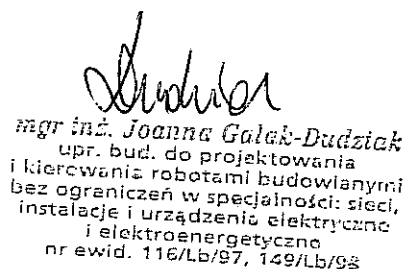 mgr inż. Joanna Galek-Dudziak
upr. bud. do projektowania
i kierowania robotami budowlanymi
bez ograniczeń w specjalności: sieci,
instalacje i urządzenia elektryczne
i elektroenergetyczne
nr ewid. 116/Lb/97, 149/Lb/98